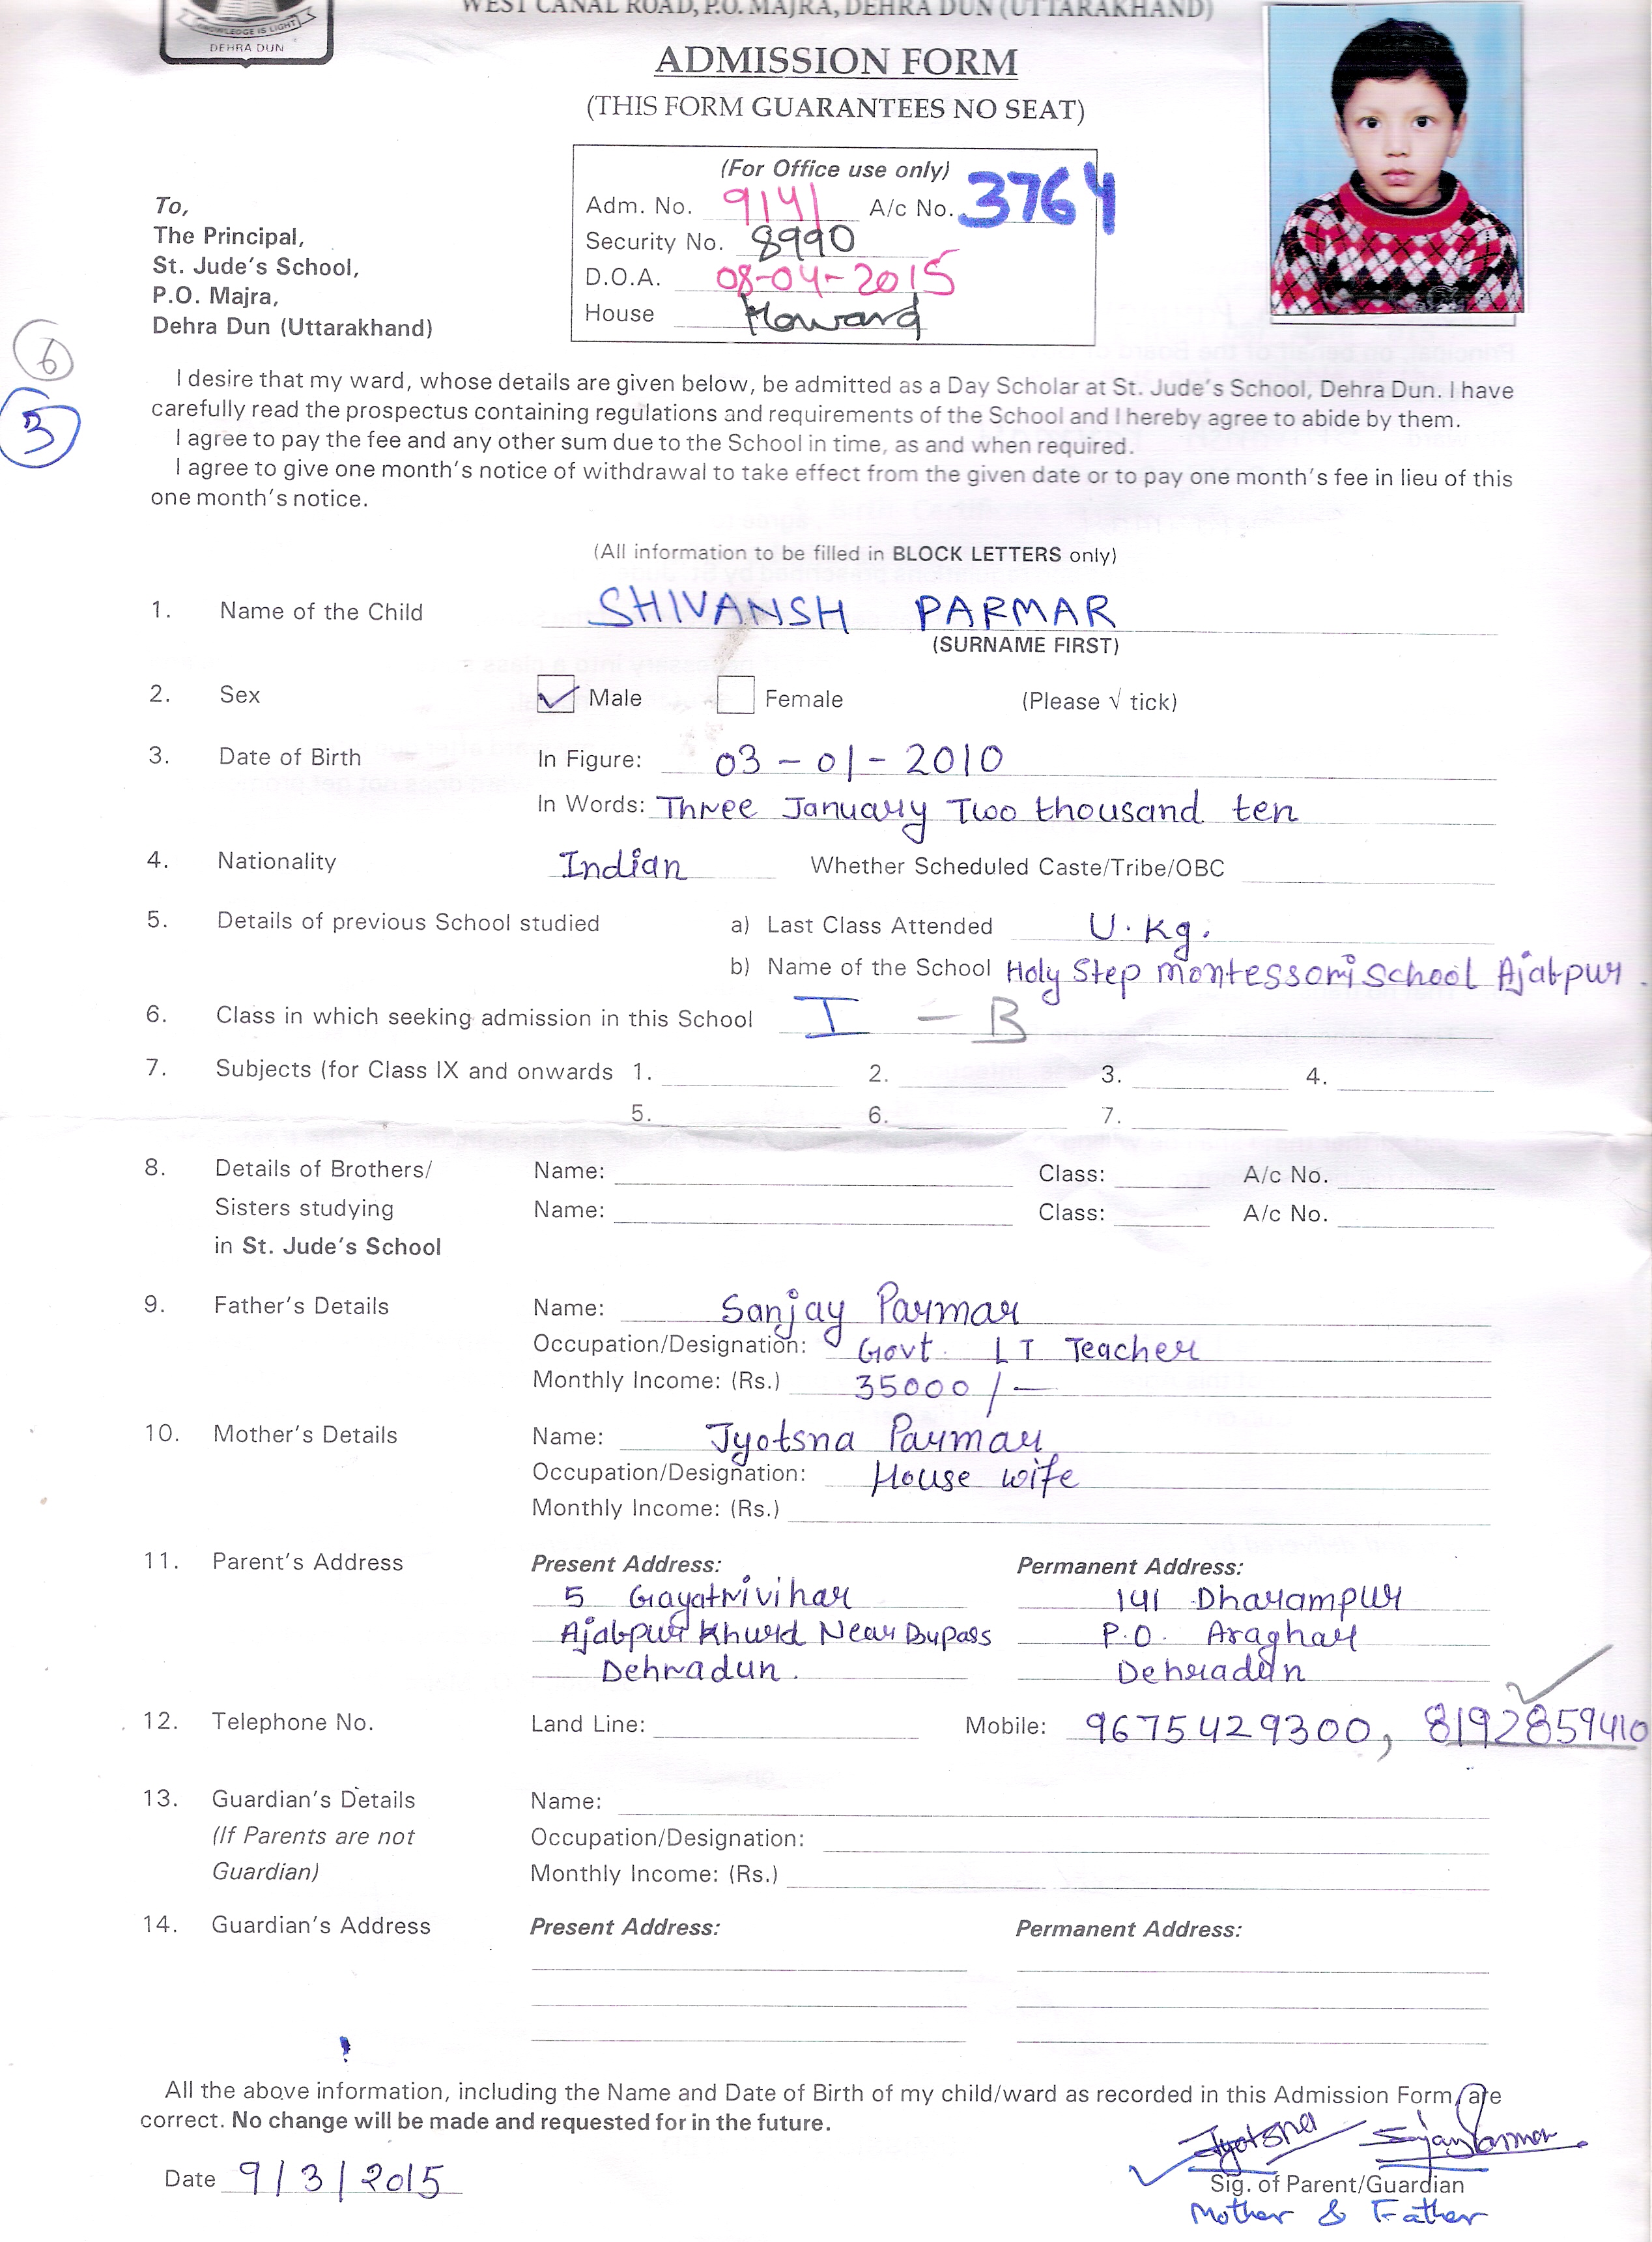 WEST CANAL ROAD, P.O. MAJRA, DEHRA DUN (UTTARAKHAND)
KNOWLEDGE IS LIGHT
DEHRA DUN
ADMISSION FORM
(THIS FORM GUARANTEES NO SEAT)
(For Office use only)
Adm. No. 9141 A/c No. 3764
Security No. 8990
D.O.A. 08-04-2015
House Howard
To,
The Principal,
St. Jude's School,
P.O. Majra,
Dehra Dun (Uttarakhand)
6
3
I desire that my ward, whose details are given below, be admitted as a Day Scholar at St. Jude's School, Dehra Dun. I have
carefully read the prospectus containing regulations and requirements of the School and I hereby agree to abide by them.
I agree to pay the fee and any other sum due to the School in time, as and when required.
I agree to give one month's notice of withdrawal to take effect from the given date or to pay one month's fee in lieu of this
one month's notice.
(All information to be filled in BLOCK LETTERS only)
1. Name of the Child SHIVANSH PARMAR
(SURNAME FIRST)
2. Sex ✓ Male Female (Please √ tick)
3. Date of Birth In Figure: 03-01-2010
In Words: Three January Two thousand ten
4. Nationality Indian Whether Scheduled Caste/Tribe/OBC
5. Details of previous School studied a) Last Class Attended U.Kg.
b) Name of the School Holy Step montessori School Ajabpur.
6. Class in which seeking admission in this School I - B
7. Subjects (for Class IX and onwards 1. 2. 3. 4.
5. 6. 7.
8. Details of Brothers/ Name: Class: A/c No.
Sisters studying Name: Class: A/c No.
in St. Jude's School
9. Father's Details Name: Sanjay Parmar
Occupation/Designation: Govt. LT Teacher
Monthly Income: (Rs.) 35000/-
10. Mother's Details Name: Jyotsna Parmar
Occupation/Designation: House wife
Monthly Income: (Rs.)
11. Parent's Address Present Address: Permanent Address:
5 Gayatrivihar 141 Dharampur
Ajabpur Khurd Near Bypass P.O. Araghar
Dehradun. Dehradun
12. Telephone No. Land Line: Mobile: 9675429300, 8192859410
13. Guardian's Details Name:
(If Parents are not Occupation/Designation:
Guardian) Monthly Income: (Rs.)
14. Guardian's Address Present Address: Permanent Address:
All the above information, including the Name and Date of Birth of my child/ward as recorded in this Admission Form, are
correct. No change will be made and requested for in the future.
Jyotsna Sanjay Parmar
Date 9/3/2015 Sig. of Parent/Guardian
Mother & Father